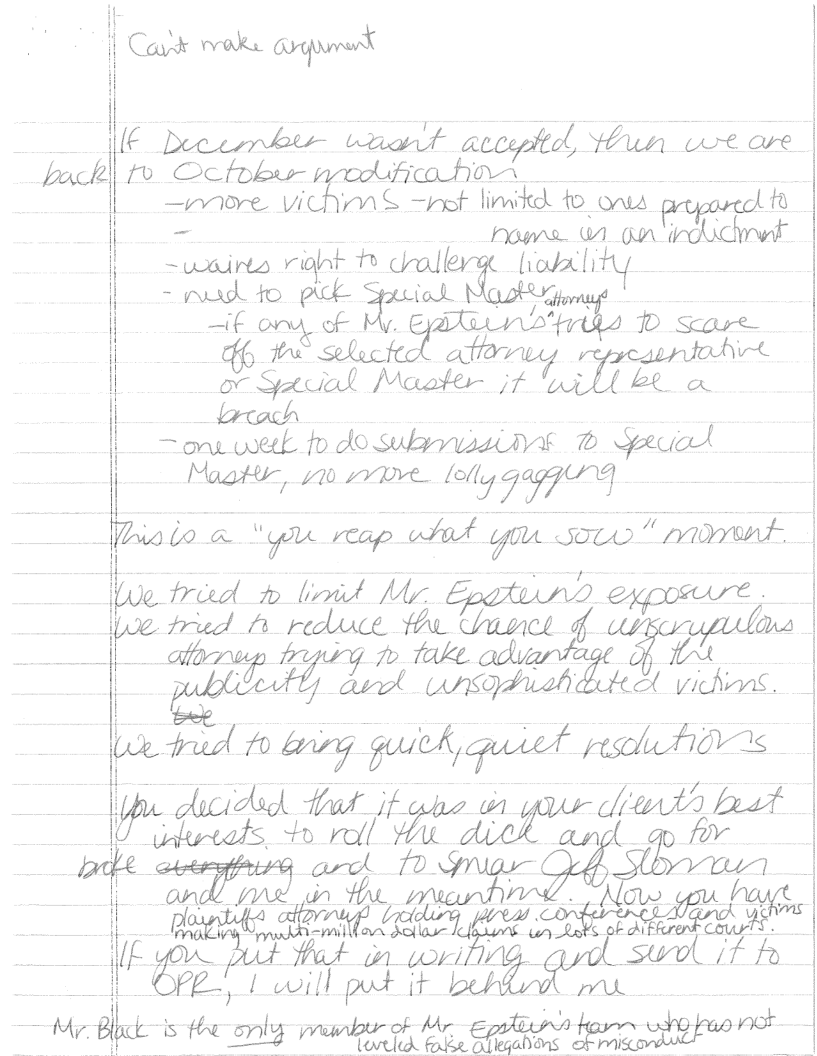 Can't make argument
If December wasn't accepted, then we are
back to October modification
- more victims - not limited to ones prepared to
- name in an indictment
- waives right to challenge liability
- need to pick Special Master
attorneys
- if any of Mr. Epstein's ^ tries to scare
off the selected attorney representative
or Special Master it will be a
breach
- one week to do submissions to Special
Master, no more lollygagging
This is a "you reap what you sow" moment.
We tried to limit Mr. Epstein's exposure.
We tried to reduce the chance of unscrupulous
attorneys trying to take advantage of the
publicity and unsophisticated victims.
We tried to bring quick, quiet resolutions
You decided that it was in your client's best
interests to roll the dice and go for
broke everything and to smear Jeff Sloman
and me in the meantime. Now you have
plaintiffs attorneys holding press conferences and victims
making multi-million dollar claims in lots of different courts.
If you put that in writing and send it to
OPR, I will put it behind me
Mr. Black is the only member of Mr. Epstein's team who has not
leveled false allegations of misconduct